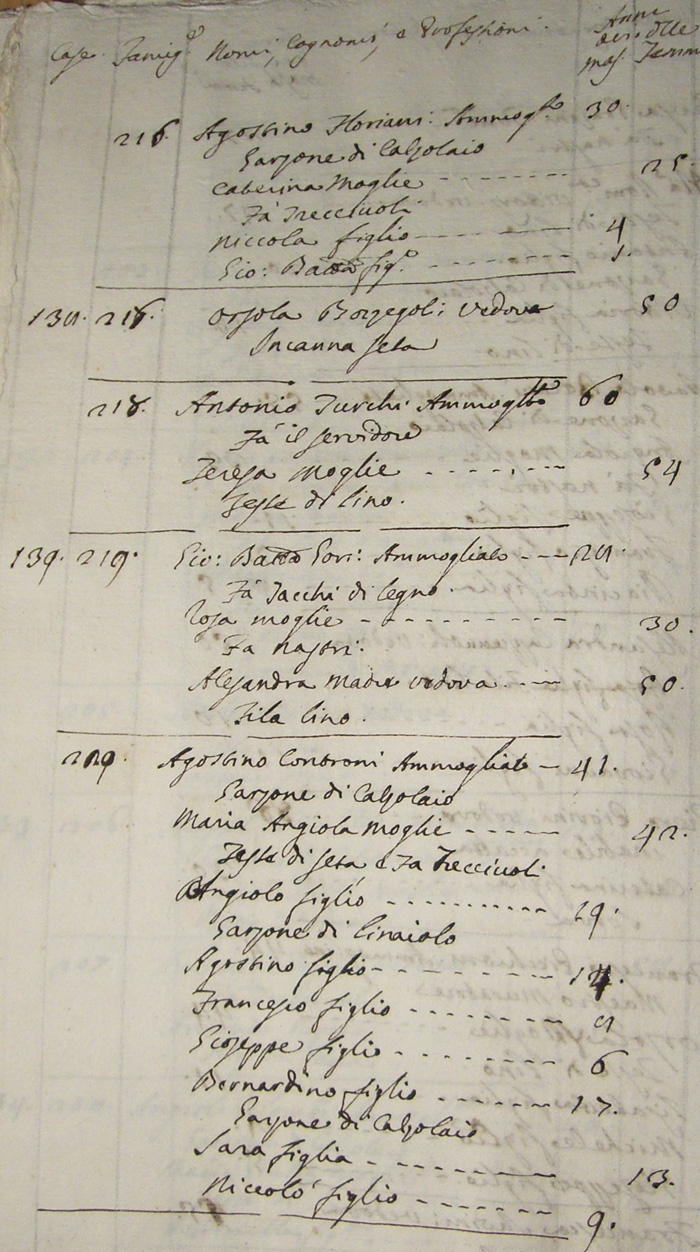 Case Famig.e Nomi, Cognomi, e Professioni. Anni
delle
mas. Femm
216 Agostino Floriani: Ammog.to 30.
Garzone di Calzolaio
Caterina Moglie - - - - - - - 25.
Fà Trecciuoli
Niccola figlio - - - - - - - 4
Gio: Batta fig.o - - - - - - - 1.
216. Orsola Borzegoli vedova 50
Incanna seta
218. Antonio Turchi Ammogl.to 60
Fà il servidore
Teresa Moglie - - - - - - 54
Tesse di lino.
139. 219. Gio: Batta Gori: Ammogliato - - -
Fà Tacchi di legno.
Rosa moglie - - - - - - - - - 30.
Fa nastri.
Alesandra madre vedova - - - 50.
Fila lino.
Agostino Controni Ammogliato - 41.
Garzone di Calzolaio
Maria Angiola Moglie - - - - - 42.
Tesse di seta e Fa Trecciuoli
Angiolo figlio - - - - - - - - - 19.
Garzone di Linaiolo
Agostino figlio - - - - - - - 14.
Francesco figlio - - - - - - -
Giuseppe figlio - - - - - - - 6
Bernardino figlio - - - - - - 17.
Garzone di Calzolaio
Sara figlia - - - - - - - 13.
Niccolò figlio - - - - - - - 9.